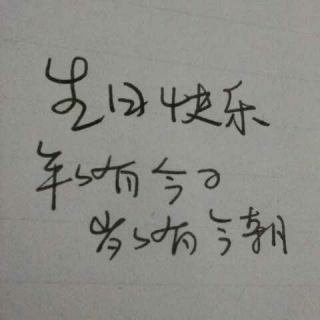 生日快乐
年年有今日
岁岁有今朝